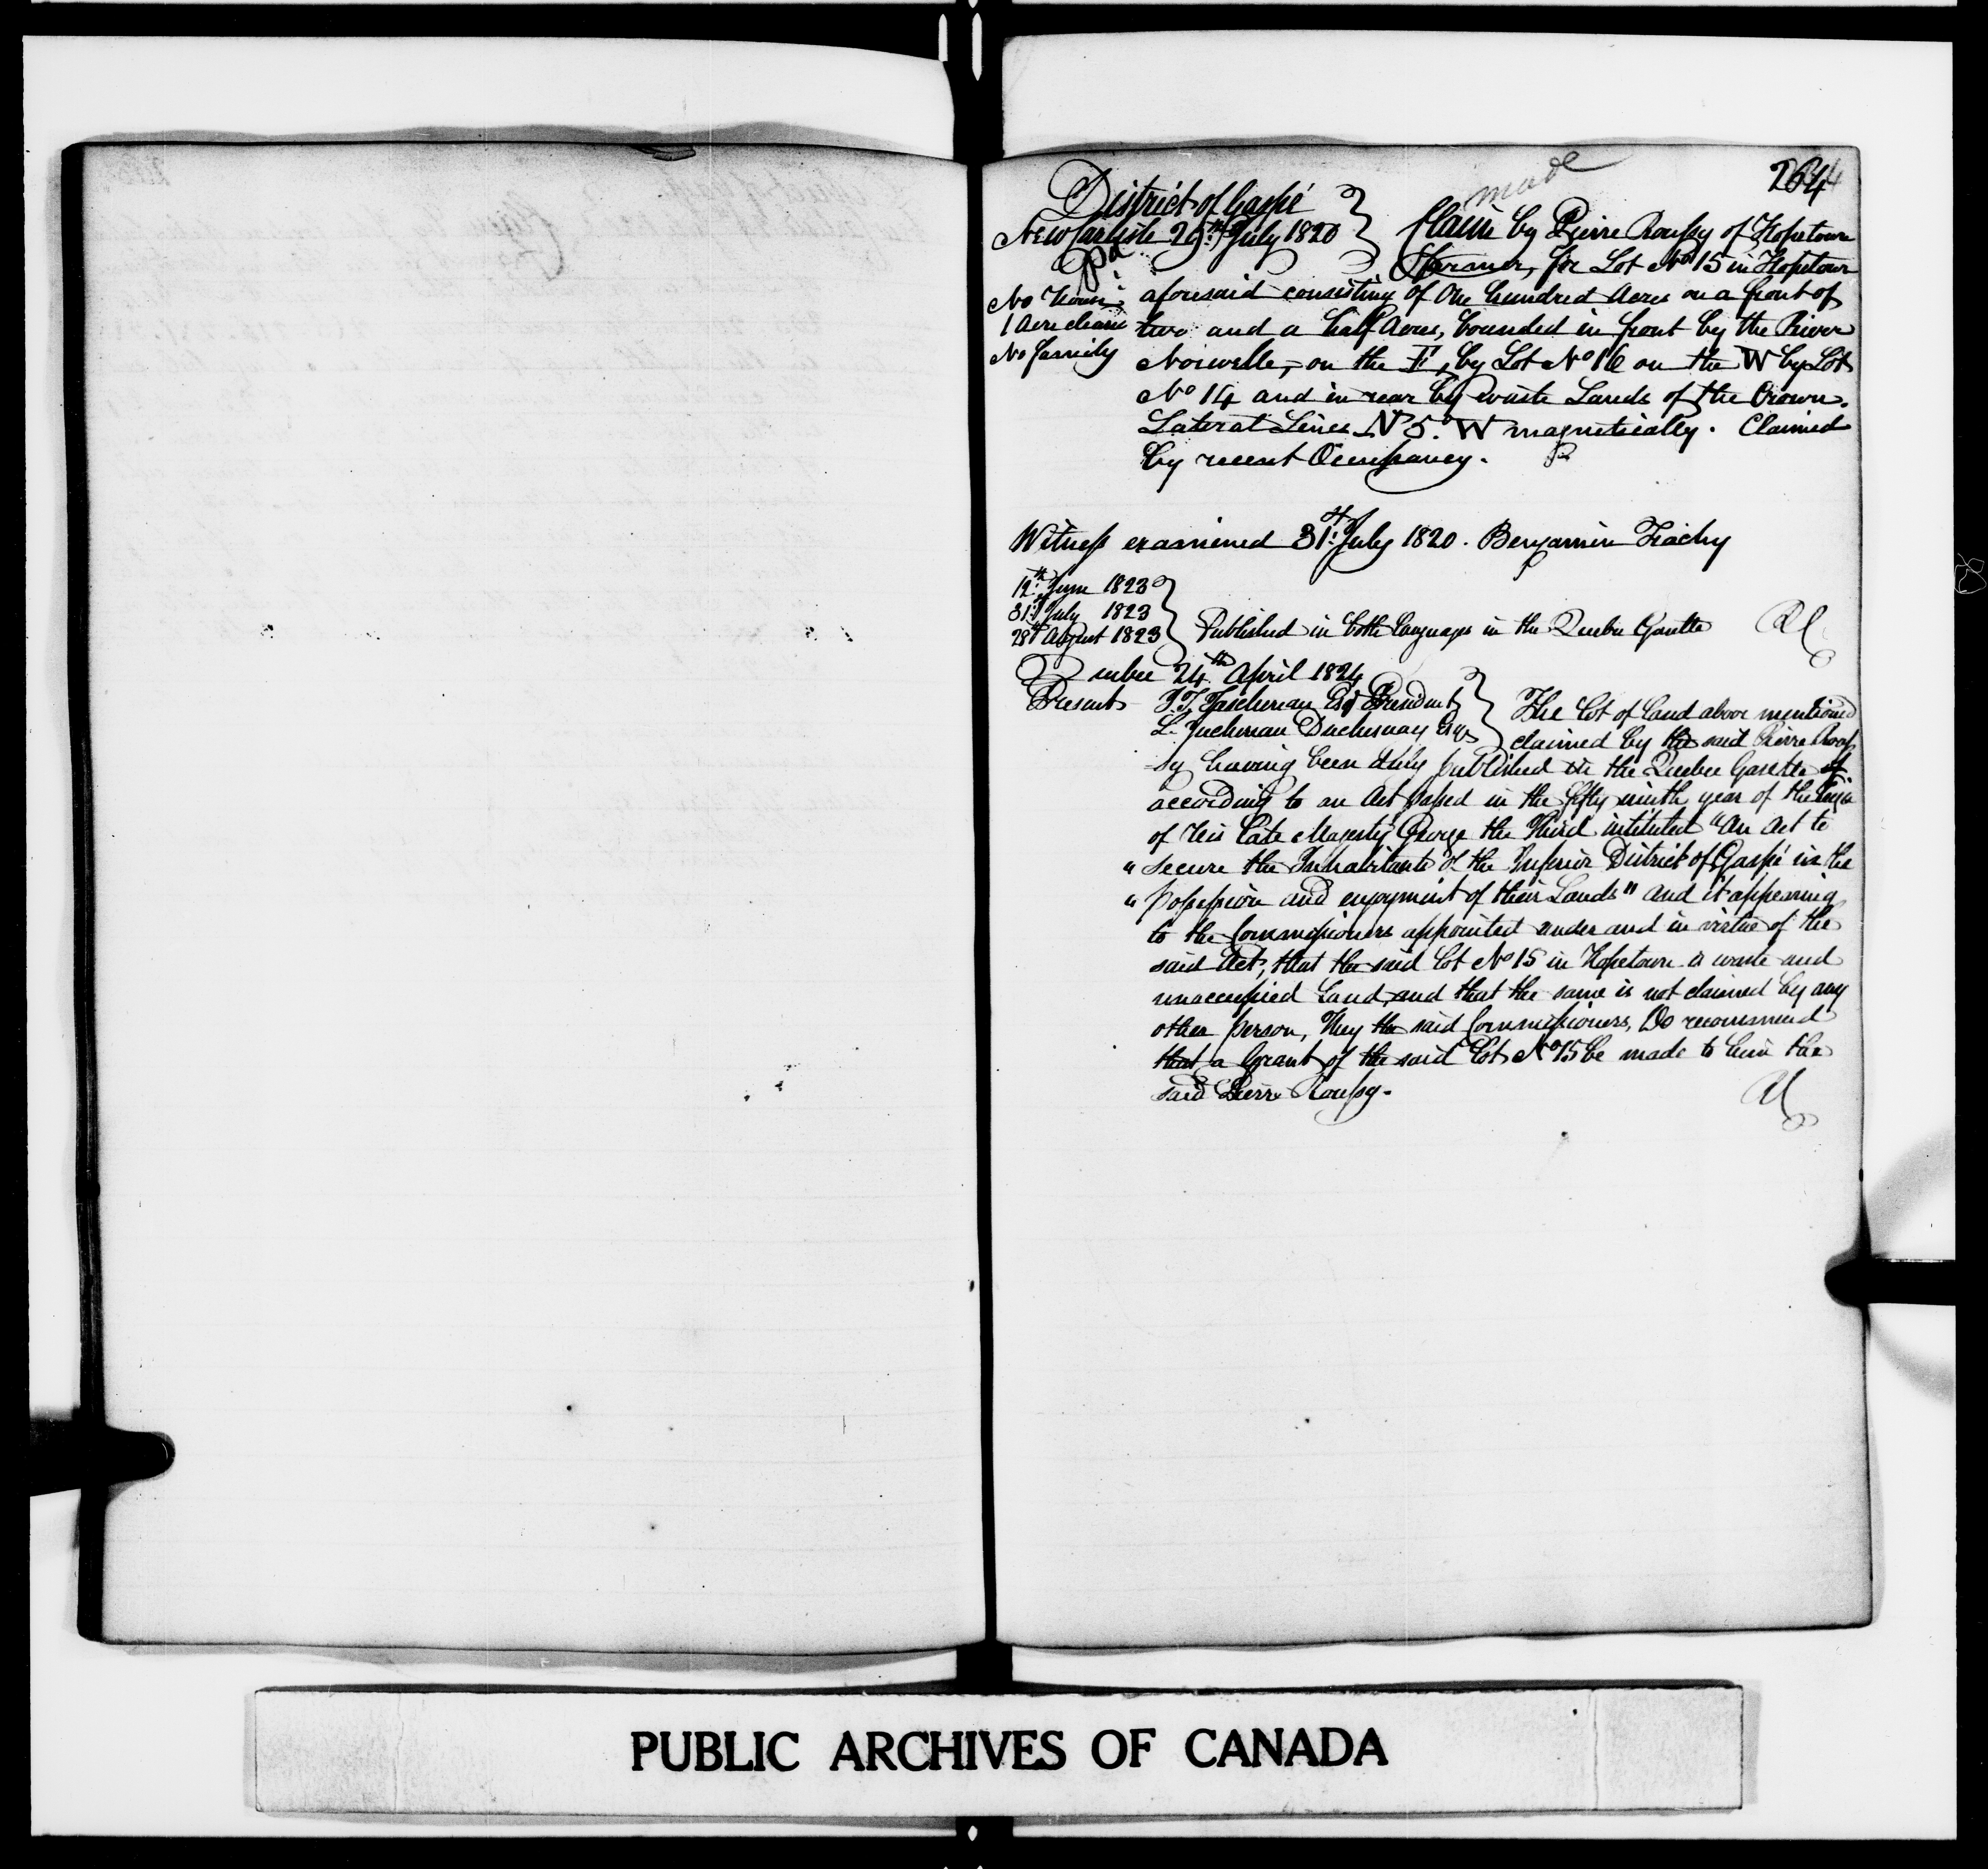 made
264
District of Gaspé
New Carlisle 29th July 1820
Claim by Pierre Roussy of Hopetown
pd
Farmer, for Lot No 15 in Hopetown
No house
1 Acre clear
No family
aforesaid consisting of One hundred Acres on a front of
two and a half Acres, bounded in front by the River
on the E, by Lot No 16 on the W by Lot
No 14 and in rear by waste Lands of the Crown.
Lateral Lines N 5° W magnetically. Claimed
by recent Occupancy.
Witness examined 31st July 1820. Benjamin
12th June 1823
31st July 1823
28th August 1823
Published in both languages in the Quebec Gazette
Quebec 24th April 1824
Present J.T. Taschereau Esqr President
L. Juchereau Duchesnay Esqr
The lot of land above mentioned
claimed by the said Pierre Rous
sy having been duly published in the Quebec Gazette
according to an Act passed in the fifty ninth year of the Reign
of His late Majesty George the Third intituled "An Act to
" secure the Inhabitants of the Inferior District of Gaspé in the
" possession and enjoyment of their Lands" and it appearing
to the Commissioners appointed under and in virtue of the
said Act, that the said lot No 15 in Hopetown is waste and
unoccupied Land, and that the same is not claimed by any
other person, They the said Commissioners, Do recommend
that a Grant of the said Lot No 15 be made to him the
said Pierre Roussy.
PUBLIC ARCHIVES OF CANADA